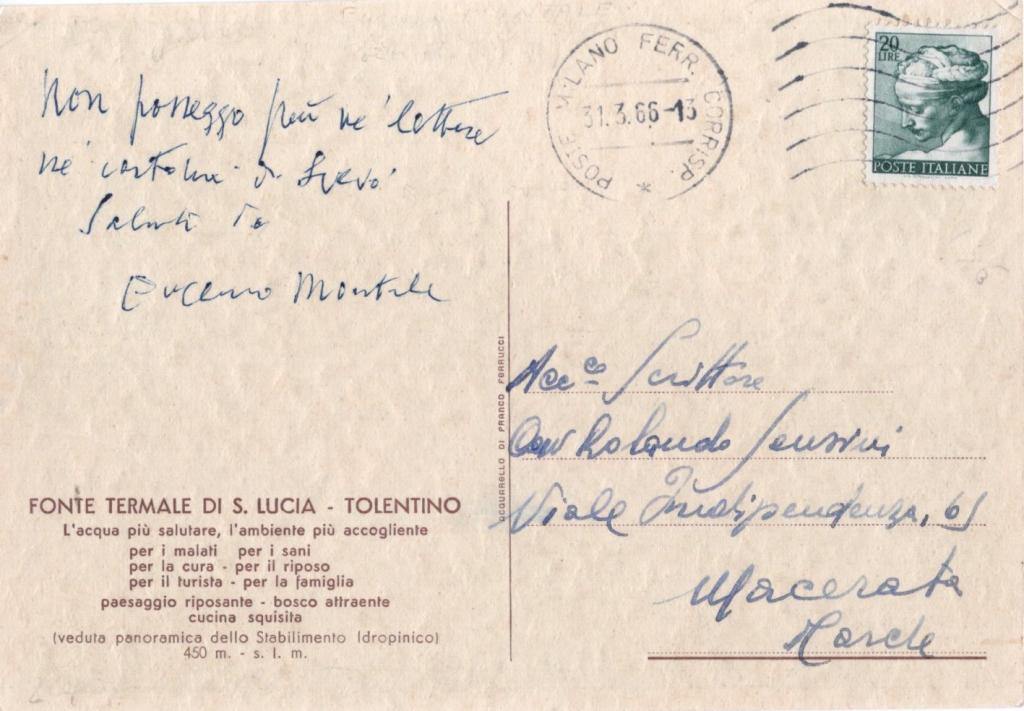 Non posseggo più né lettere
né cartoline di Svevo.
Saluti da
Eugenio Montale
POSTE MILANO FERR. CORRISP.
31.3.66-13
20
LIRE
POSTE ITALIANE
ACQUARELLO DI FRANCO FERRUCCI
Scrittore
Cav Rolando Sensini
Viale Indipendenza, 61
Macerata
Marche
FONTE TERMALE DI S. LUCIA - TOLENTINO
L'acqua più salutare, l'ambiente più accogliente
per i malati per i sani
per la cura - per il riposo
per il turista - per la famiglia
paesaggio riposante - bosco attraente
cucina squisita
(veduta panoramica dello Stabilimento Idropinico)
450 m. - s. l. m.